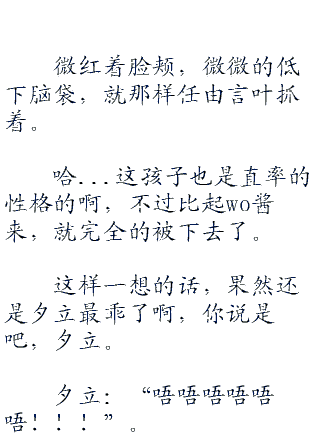 微红着脸颊，微微的低
下脑袋，就那样任由言叶抓
着。
哈...这孩子也是直率的
性格的啊，不过比起wo酱
来，就完全的被下去了。
这样一想的话，果然还
是夕立最乖了啊，你说是
吧，夕立。
夕立：“唔唔唔唔唔
唔！！！”。